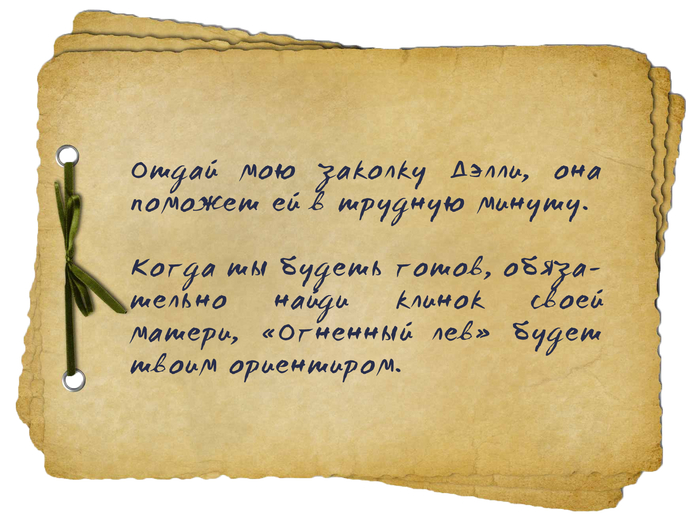 Отдай мою заколку Дэлли, она
поможет ей в трудную минуту.
Когда ты будешь готов, обяза-
тельно найди клинок своей
матери, «Огненный лев» будет
твоим ориентиром.